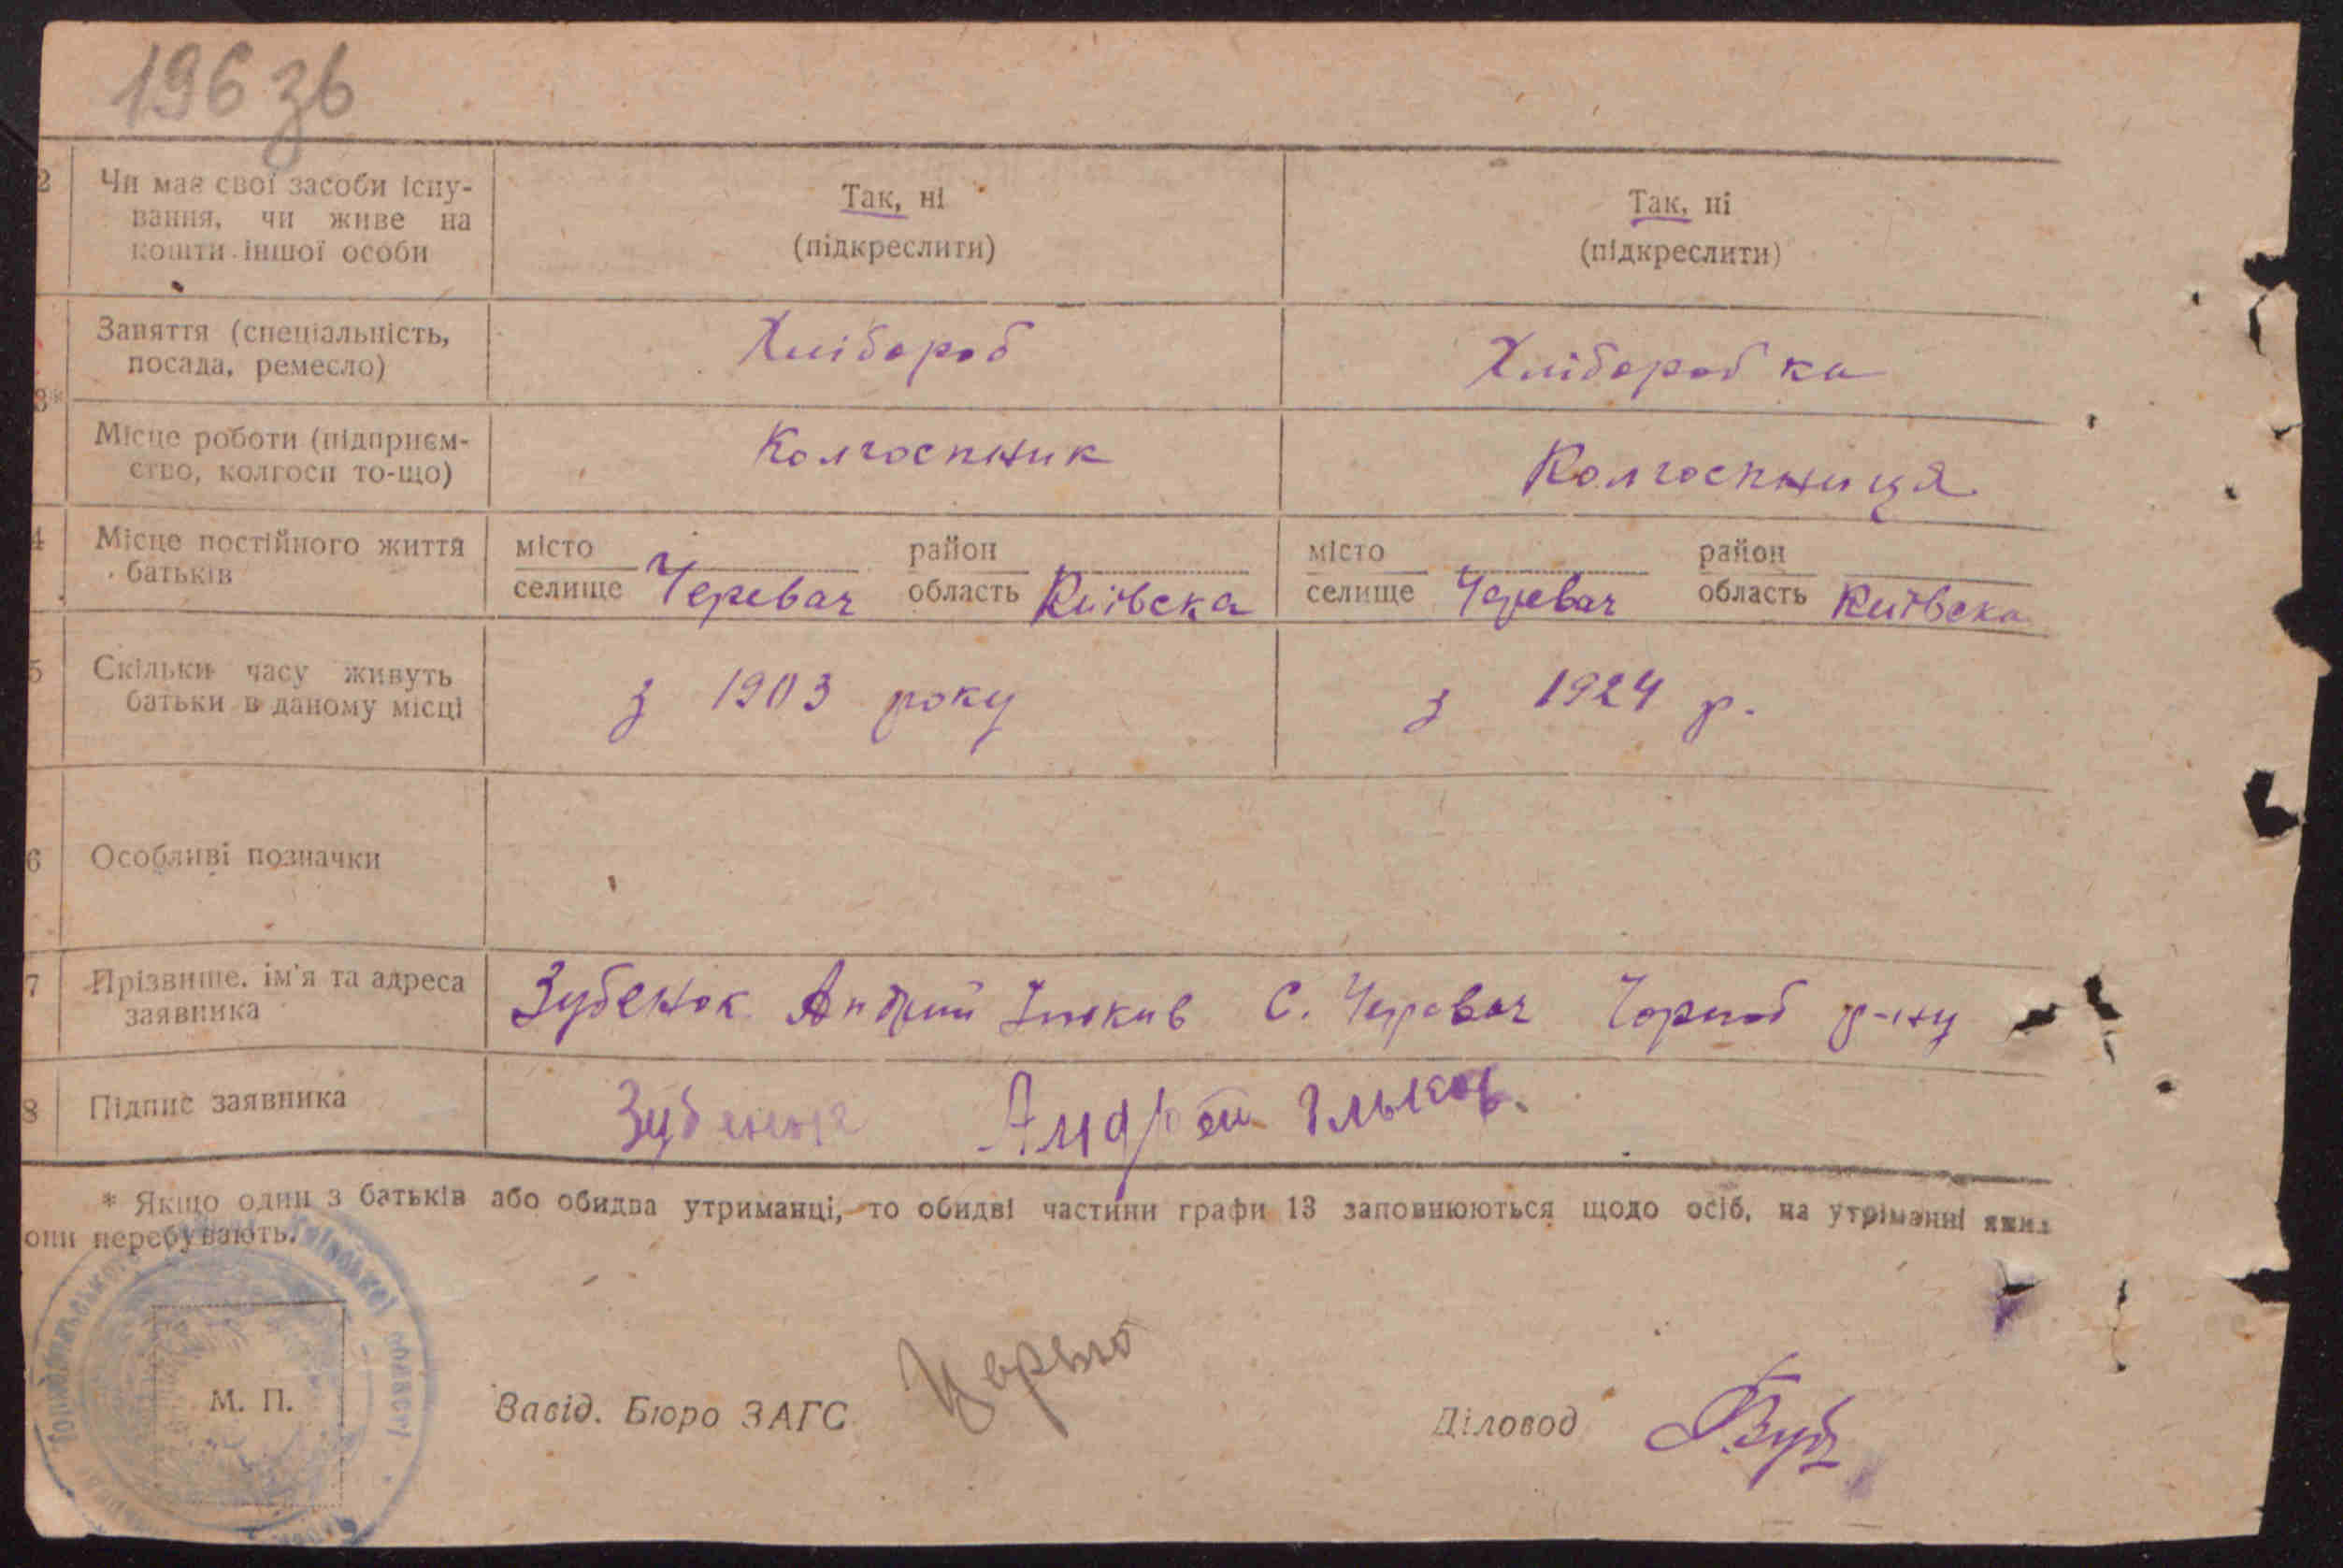 196 зв
2 Чи має свої засоби існу-
вання, чи живе на
кошти іншої особи
Так, ні
(підкреслити)
Так, ні
(підкреслити)
3*
Заняття (спеціальність,
посада, ремесло)
Хлібороб
Хлібороб ка
Місце роботи (підприєм-
ство, колгосп то-що)
Колгоспник
Колгоспниця
4 Місце постійного життя
батьків
місто район
селище Черевач область Київска
місто район
селище Черевач область Київска
5 Скільки часу живуть
батьки в даному місці
з 1903 року
з 1924 р.
6 Особливі позначки
7 Прізвише, ім'я та адреса
заявника
Зубенок Андрій С. Черевач Чорноб р-ну
8 Підпис заявника
Зубенок Андрей
* Якщо один з батьків або обидва утриманці, то обидві частини графи 13 заповнюються щодо осіб, на утріманні яких
они перебувають.
Київської області
М. П.
Завід. Бюро ЗАГС
Діловод